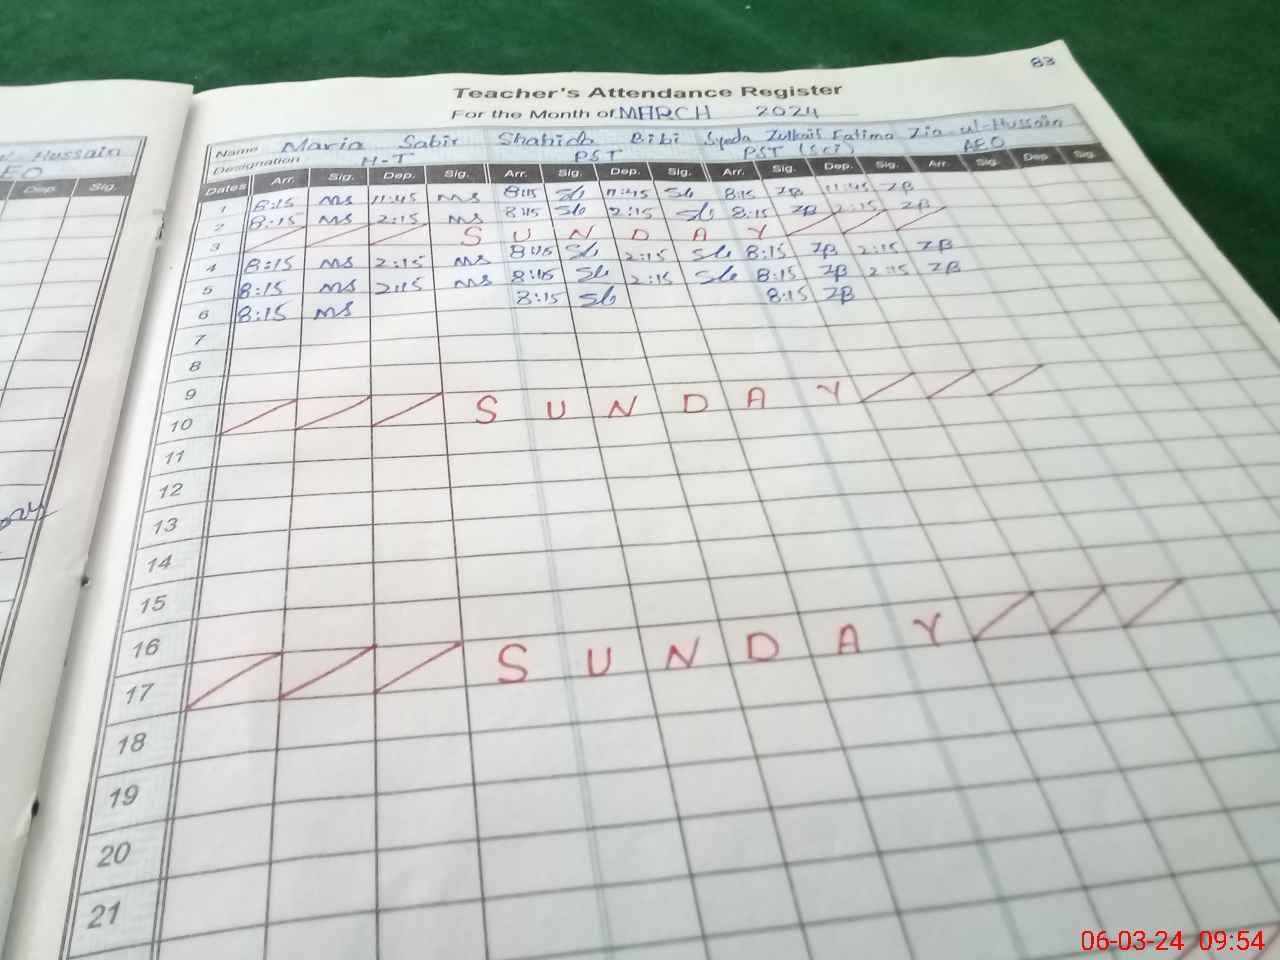 83
Teacher's Attendance Register
For the Month of MARCH 2024
ul-Hussain
Name Maria Sabir Shahida Bibi Syeda Zulkaif Fatima Zia-ul-Hussain
EO
Designation H-T PST PST (Sci) AEO
Dep. Sig.
Dates Arr. Sig. Dep. Sig. Arr. Sig. Dep. Sig. Arr. Sig. Dep. Sig. Arr. Sig. Dep. Sig.
1 8:15 ms 11:45 ms 8:15 Sb 11:45 Sb 8:15 ZB 11:45 ZB
2 8:15 ms 2:15 ms 8:15 Sb 2:15 Sb 8:15 ZB 2:15 ZB
3 S U N D A Y
4 8:15 ms 2:15 ms 8:15 Sb 2:15 Sb 8:15 ZB 2:15 ZB
5 8:15 ms 2:15 ms 8:15 Sb 2:15 Sb 8:15 ZB 2:15 ZB
6 8:15 ms 8:15 Sb 8:15 ZB
7
8
9
10 S U N D A Y
11
12
13
14
15
16
17 S U N D A Y
18
19
20
21
06-03-24 09:54